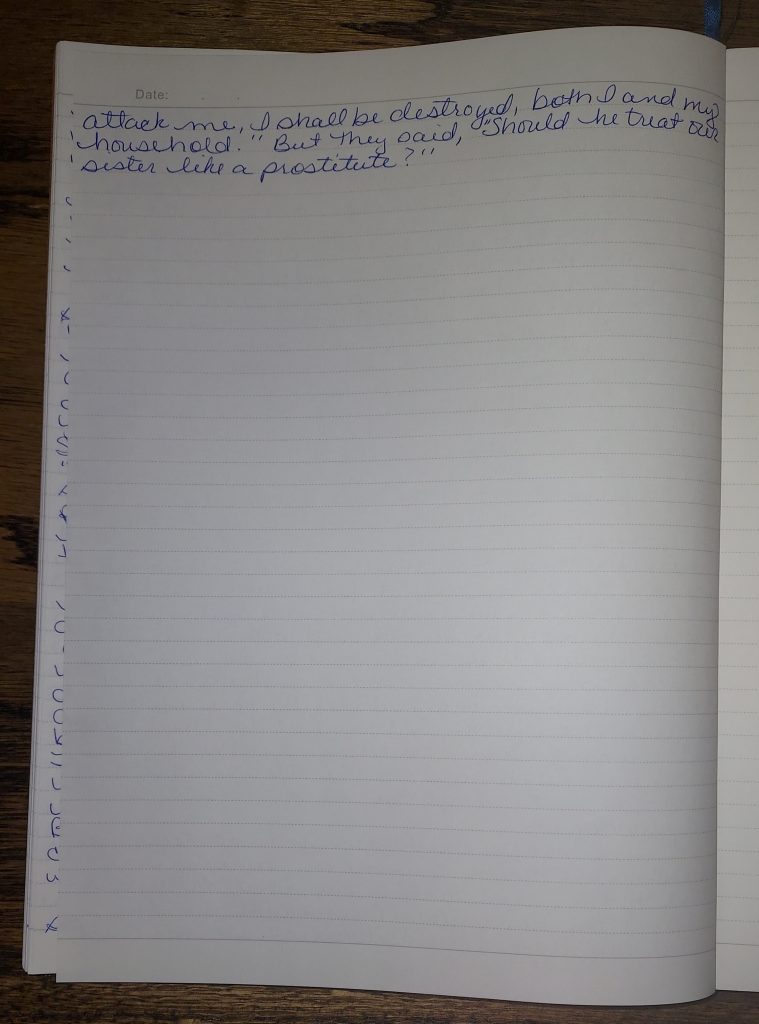 Date:
attack me, I shall be destroyed, both I and my
household." But they said, "Should he treat our
sister like a prostitute?"